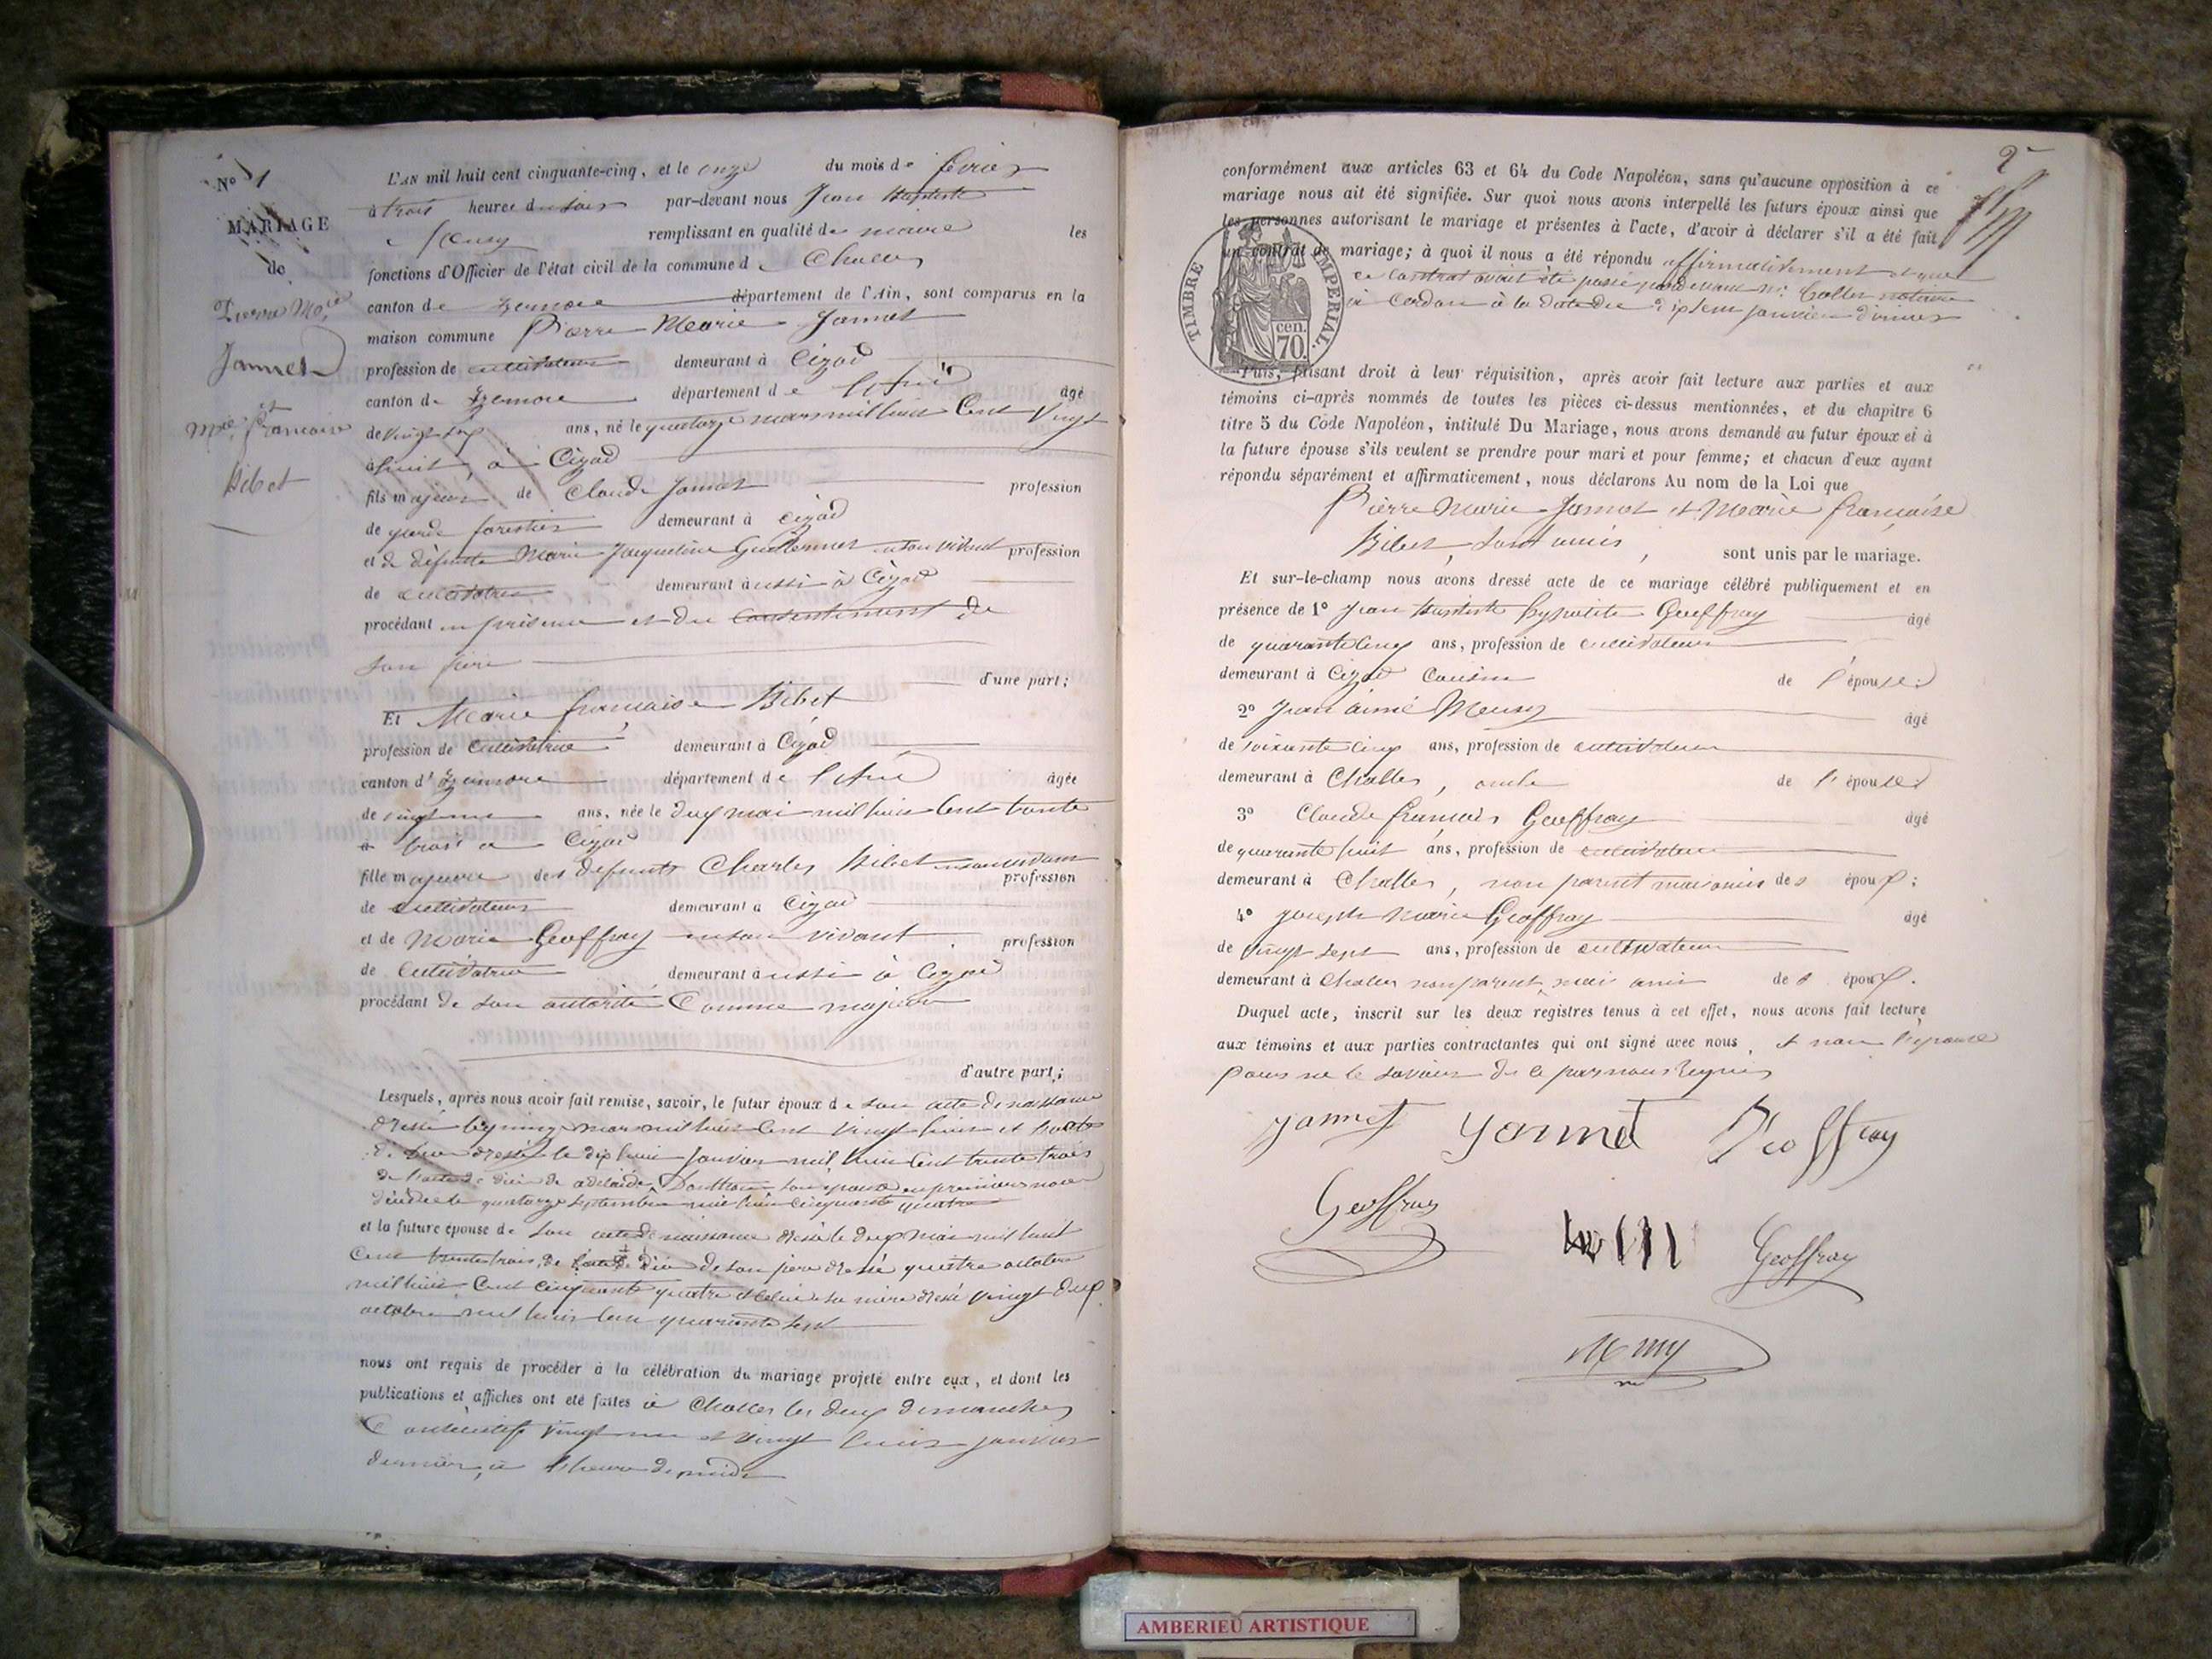 N° 1
MARIAGE
de
Pierre Mie
Jannet
et
Mie françoise
Bibet
L'AN mil huit cent cinquante-cinq, et le onze du mois de février
à trois heures du soir par-devant nous Jean Baptiste
remplissant en qualité de maire les
fonctions d'Officier de l'état civil de la commune de Challes
canton de département de l'Ain, sont comparus en la
maison commune Pierre Marie Jannet
profession de cultivateur demeurant à Cizod
canton de département de l'Ain âgé
de vingt six ans, né le quatorze mars mil huit Cent Vingt
huit, à Cizod
fils majeur de Claude Jannet profession
de garde forestier demeurant à Cizod
et de défunte Marie Jaqueline en son vivant profession
de cultivatrice demeurant aussi à Cizod
procédant en présence et du consentement de
son père
d'une part;
Et Marie françoise Bibet
profession de cultivatrice demeurant à Cizod
canton d département de l'Ain âgée
de vingt un ans, née le deux mai mil huit Cent trente
trois à Cizod
fille majeure des défunts Charles Bibet en son vivant
profession
de cultivateur demeurant à Cizod
et de Marie Geoffray en son vivant profession
de cultivatrice demeurant aussi à Cizod
procédant de son autorité Comme majeure
d'autre part;
Lesquels, après nous avoir fait remise, savoir, le futur époux de son acte de naissance
dressé le quinze mars mil huit Cent vingt huit et l'acte
de dressé le dix huit janvier mil huit Cent trente trois
de l'acte de de adélaïde son épouse en premières noces
décédée le quatorze septembre mil huit cinquante quatre
et la future épouse de son acte de naissance dressé le deux mai mil huit
Cent trente trois, de l'acte de de son père dressé quatre octobre
mil huit Cent cinquante quatre et celui de sa mère dressé vingt deux
octobre mil huit Cent quarante sept
nous ont requis de procéder à la célébration du mariage projeté entre eux, et dont les
publications et affiches ont été faites à Challes les deux dimanches
Consécutifs vingt un et vingt huit janvier
dernier, à l'heure de midi
2
conformément aux articles 63 et 64 du Code Napoléon, sans qu'aucune opposition à ce
mariage nous ait été signifiée. Sur quoi nous avons interpellé les futurs époux ainsi que
les personnes autorisant le mariage et présentes à l'acte, d'avoir à déclarer s'il a été fait
un contrat de mariage; à quoi il nous a été répondu affirmativement et que
ce Contrat avait été passé pardevant Me notaire
à Cerdon à la date du dix sept janvier dernier
TIMBRE IMPERIAL.
cen.
70.
Puis, faisant droit à leur réquisition, après avoir fait lecture aux parties et aux
témoins ci-après nommés de toutes les pièces ci-dessus mentionnées, et du chapitre 6
titre 5 du Code Napoléon, intitulé Du Mariage, nous avons demandé au futur époux et à
la future épouse s'ils veulent se prendre pour mari et pour femme; et chacun d'eux ayant
répondu séparément et affirmativement, nous déclarons Au nom de la Loi que
Pierre Marie Jannet et Marie françoise
Bibet, sont unis, sont unis par le mariage.
Et sur-le-champ nous avons dressé acte de ce mariage célébré publiquement et en
présence de 1° Jean Baptiste hypolite Geoffray âgé
de quarante cinq ans, profession de cultivateur
demeurant à Cizod Cousin de l'épouse;
2° Jean aimé Meusy âgé
de soixante cinq ans, profession de cultivateur
demeurant à Challes, oncle de l'épouse;
3° Claude françois Geoffray âgé
de quarante huit ans, profession de cultivateur
demeurant à Challes, non parent mais amis des époux;
4° joseph Marie Geoffray âgé
de vingt sept ans, profession de cultivateur
demeurant à Challes non parent, mais ami des époux.
Duquel acte, inscrit sur les deux registres tenus à cet effet, nous avons fait lecture
aux témoins et aux parties contractantes qui ont signé avec nous, et non l'épouse
pour ne le savoir de ce par nous requis
Jannet Jannet Geoffray
Geoffray Geoffray
AMBERIEU ARTISTIQUE